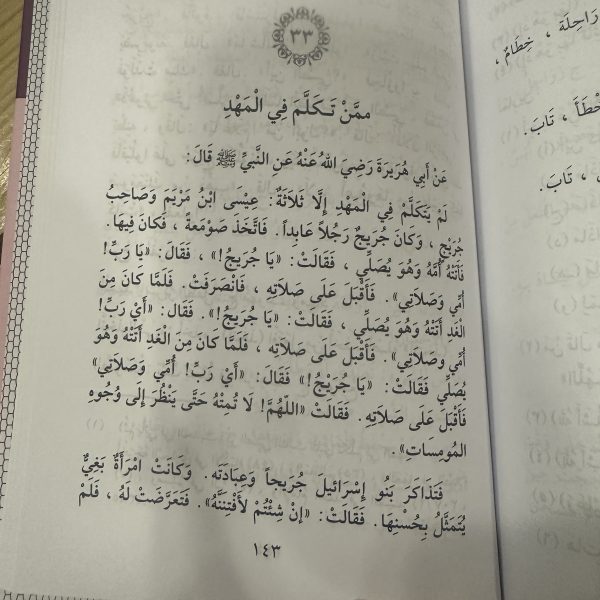 ٣٣
ممَّنْ تَكَلَّمَ فِي الْمَهْدِ
عَنْ أَبِي هُرَيرَةَ رَضِيَ اللهُ عَنْهُ عَنِ النَّبيِّ ﷺ قَالَ:
لَمْ يَتَكَلَّمْ فِي الْمَهْدِ إِلَّا ثَلَاثَةٌ: عِيْسَى ابْنُ مَرْيَمَ وَصَاحِبُ
جُرَيْجٍ ، وَكَانَ جُرَيجٌ رَجُلاً عَابِداً. فَاتَّخَذَ صَوْمَعَةً ، فَكَانَ فِيهَا.
فَأَتَتْهُ أُمُّهُ وَهُوَ يُصَلِّي ، فَقَالَتْ: «يَا جُرَيجُ!» ، فَقَالَ: «يَا رَبِّ!
أُمِّي وَصَلَاتِي». فَأَقْبَلَ عَلَى صَلَاتِهِ ، فَانْصَرَفَتْ. فَلَمَّا كَانَ مِنَ
الْغَدِ أَتَتْهُ وَهُوَ يُصَلِّي ، فَقَالَتْ: «يَا جُرَيجُ!». فَقَالَ: «أَيْ رَبِّ!
أُمِّي وصَلَاتِي». فَأَقْبَلَ عَلَى صَلَاتِهِ ، فَلَمَّا كَانَ مِنَ الْغَدِ أَتَتْهُ وَهُوَ
يُصَلِّي فَقَالَتْ: «يَا جُرَيْجُ!» فَقَالَ: «أَيْ رَبِّ! أُمِّي وَصَلَاتِي»
فَأَقْبَلَ عَلَى صَلَاتِهِ. فَقَالَتْ «اللّهُمَّ! لَا تُمِتْهُ حَتَّى يَنْظُرَ إِلَى وُجُوهِ
المُومِسَاتِ».
فَتَذَاكَرَ بَنُو إِسْرَائيلَ جُرَيجاً وَعِبَادَتَه. وَكَانَتْ امْرَأَةٌ بَغِيٌّ
يُتَمَثَّلُ بِحُسْنِهَا. فَقَالَتْ: «إنْ شِئْتُمْ لأَفْتِنَنَّهُ». فَتَعَرَّضَتْ لَهُ ، فَلَمْ
١٤٣
رَاحِلَة ، خِطَامٌ ،
، تَابَ.
، تَابَ.